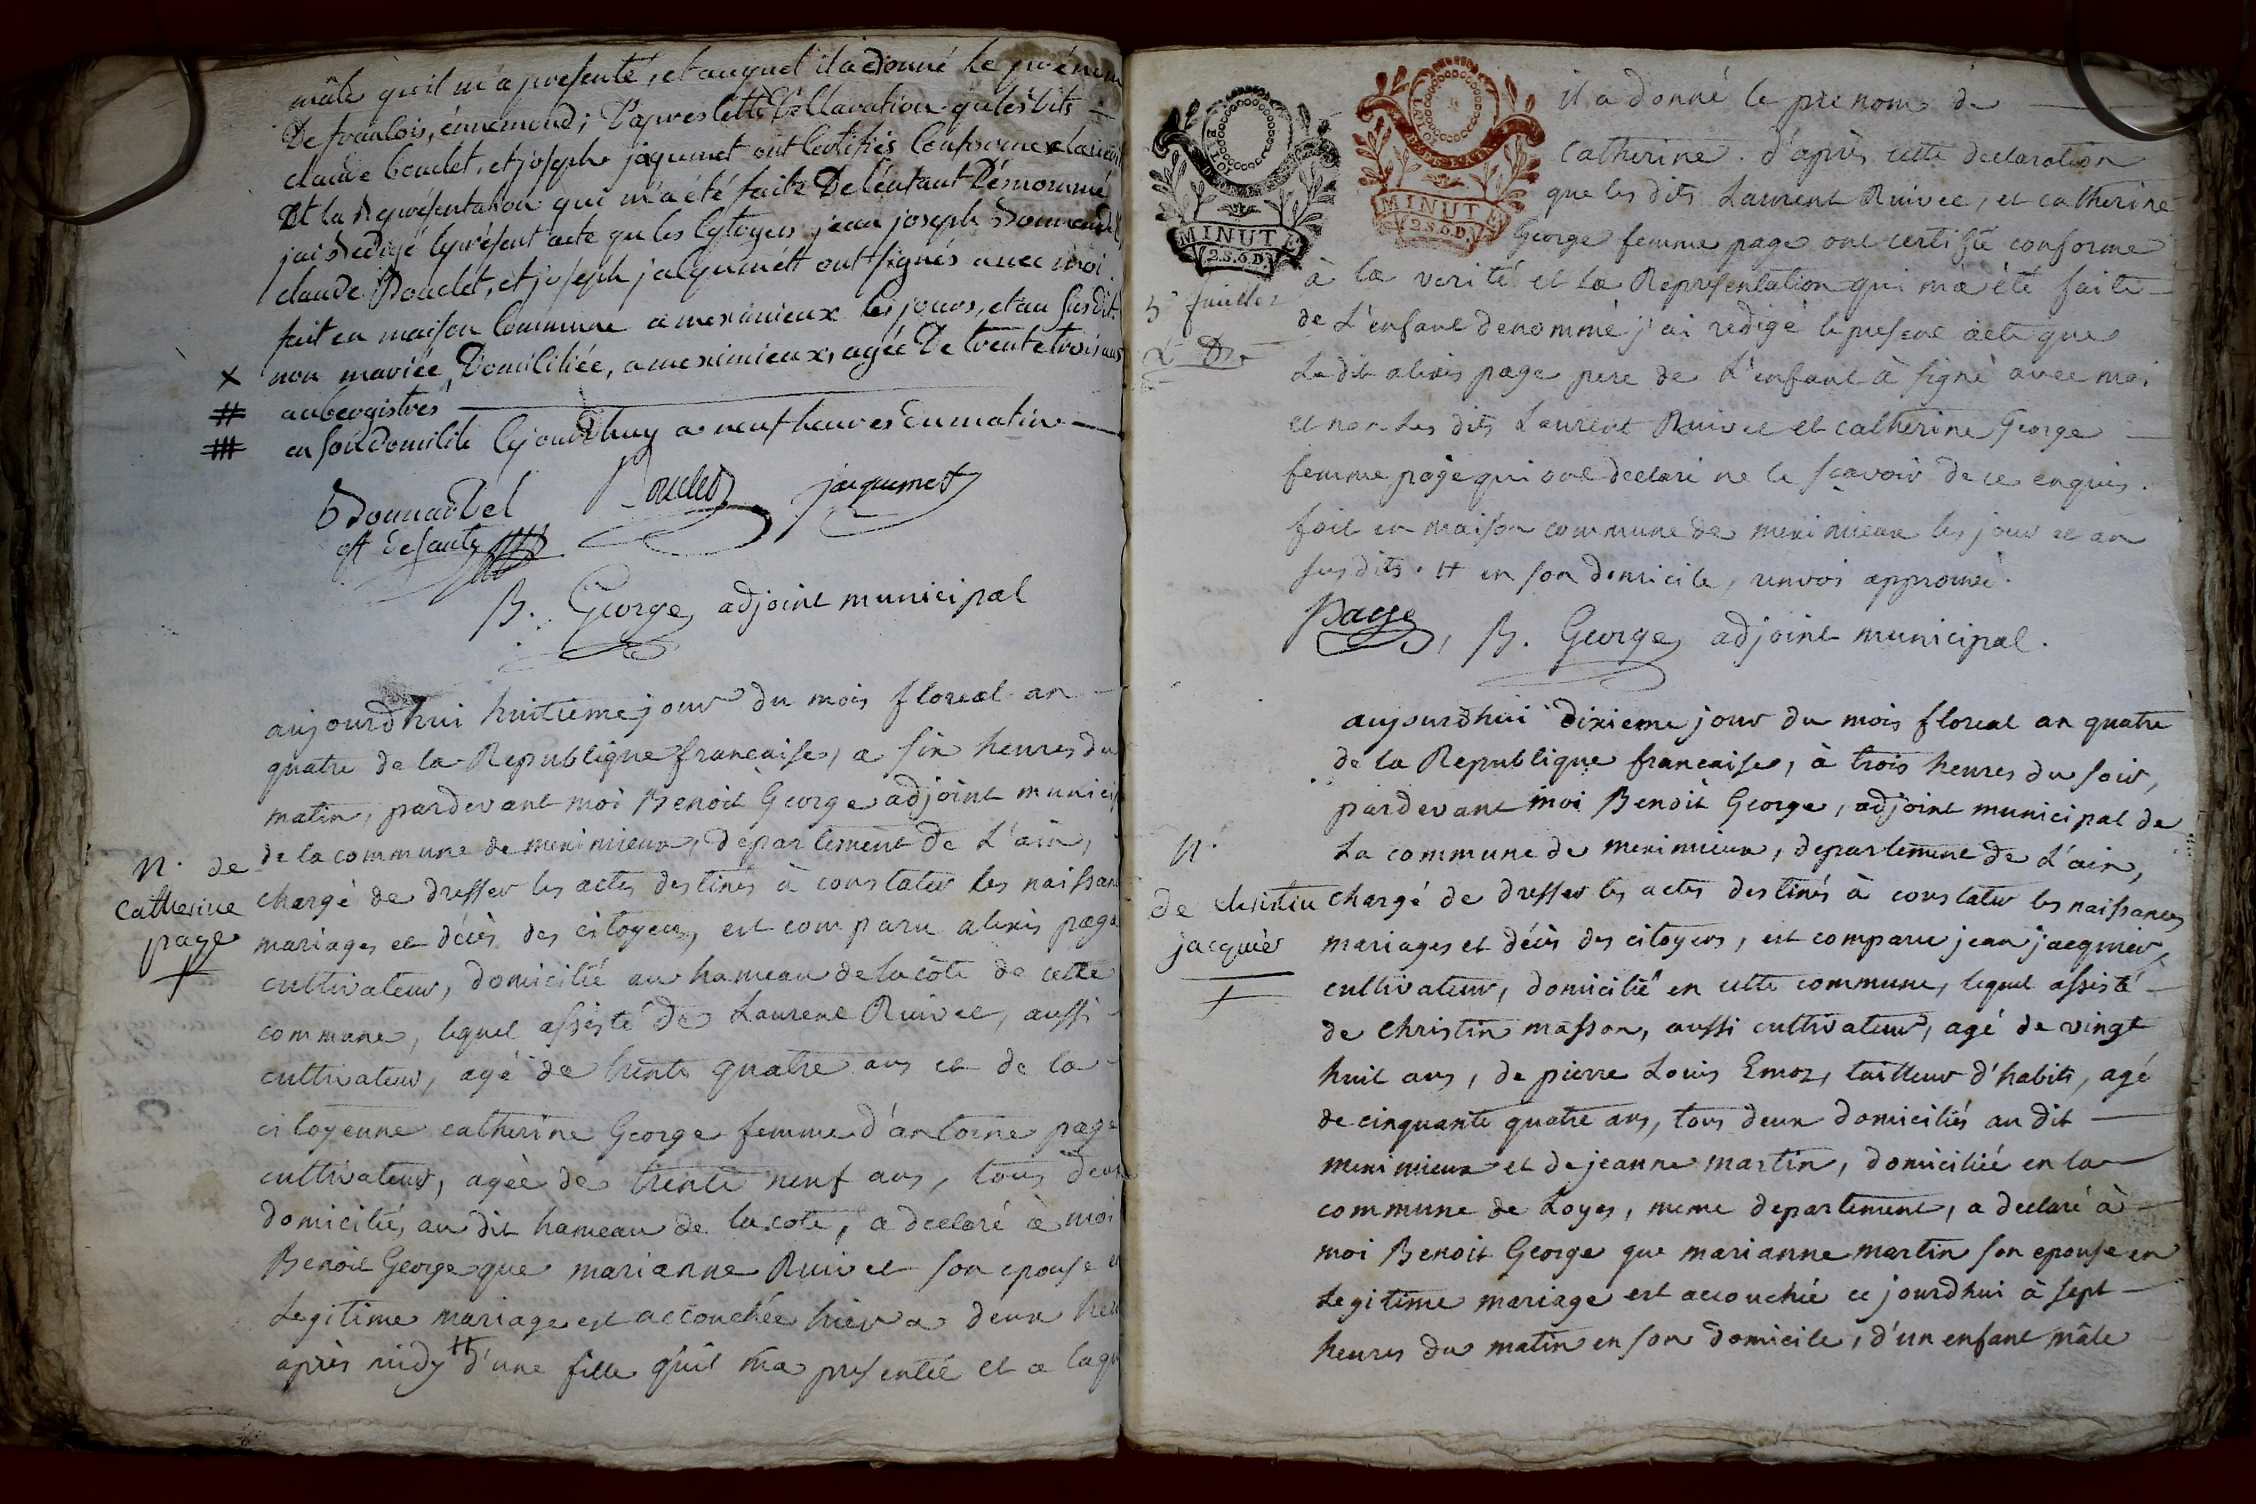 mâle qu'il m'a presenté, et auquel il a donné le prénom
De francois, ennemond; D'apres cette DEllaration que les Dits
claude bouclet, et joseph jaquemet ont Certifiés Conforme a la verité
Et la Représentation qui m'a été faite De l'enfant Dénommé
jai Redigé le présent acte que les Cytoyens jean joseph Donnardel,
claude Bouclet, et joseph jacquemett ont signés avec moi
fait en maison Commune a meximieux les jours, et an susdits
× non mariée, Domiciliée, a meximieux, agée De trente trois ans
# aubergistres
# en son domicile Cejourd'huy a neuf heures du matin
Donnardel Bouclet jacquemet
off de santé
B. George adjoint municipal
aujourd'hui huitieme jour du mois floreal an
quatre de la Republique francaise, a six heures du
matin, pardevant moi Benoit George adjoint municip
de la commune de meximieux, departement de L'ain,
N. de
Catherine
page
chargé de dresser les actes destinés à constater les naissan
mariages et décès des citoyens, est comparu alexis page
cultivateur, domicilié au hameau de la côte de cette
commune, lequel assisté de Laurent Ruivet, aussi
cultivateur, agé de trente quatre ans et de la
citoyenne catherine George femme d'antoine page
cultivateur, agée de trente neuf ans, tous deux
domicilié, au dit hameau de la cote, a declaré à moi
Benoit George que marianne Ruivet son epouse en
Legitime mariage est accouchée hier a deux heu
après midy # d'une fille qu'il m'a presentée et a laqu
MINUTE
2 S. 6 D.
MINUTE
2 S. 6 D.
il a donné le prenom de
catherine. d'après cette declaration
que les dits Laurent Ruivet, et catherine
George femme page ont certifié conforme
à la verité et la Representation qui m'a été faite
de L'enfant denommé j'ai redigé le present acte que
Le dit alexis page pere de L'enfant à signé avec moi
et non Les dits Laurent Ruivet et catherine George
femme page qui ont declaré ne le sçavoir de ce enquis.
fait en maison commune de meximieux les jour et an
susdits. # en son domicile, renvoi approuvé.
page, B. George adjoint municipal.
aujourdhui dixieme jour du mois floreal an quatre
de la Republique francaise, à trois heures du soir,
pardevant moi Benoit George, adjoint municipal de
La commune de meximieux, departement de L'ain,
N.
de christin
jacquier
chargé de dresser les actes destinés à constater les naissances
mariages et décès des citoyens, est comparu jean jacquier,
cultivateur, domicilié en cette commune, lequel assisté
de christin masson, aussi cultivateur, agé de vingt
huit ans, de pierre Louis Emoz, tailleur d'habits, agé
de cinquante quatre ans, tous deux domiciliés au dit
meximieux et de jeanne martin, domiciliée en la
commune de Loyes, meme departement, a declaré à
moi Benoit George que marianne martin son epouse en
Legitime mariage est accouchée ce jourdhui à sept
heures du matin en son domicile, d'un enfant mâle